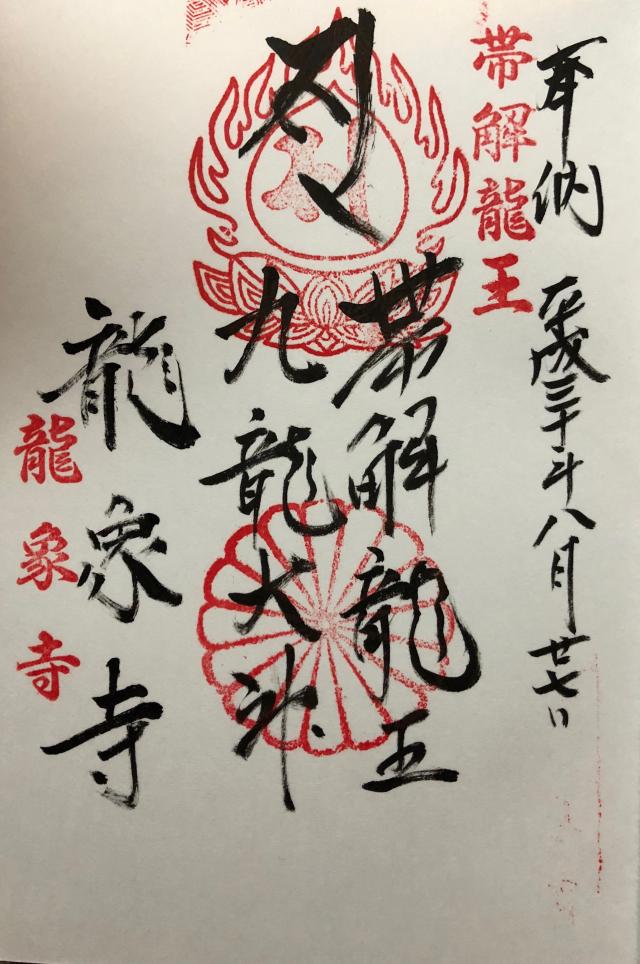 奉納
平成三十年八月廿七日
帯解龍王
帯解龍王
九龍大神
龍象寺
龍象寺